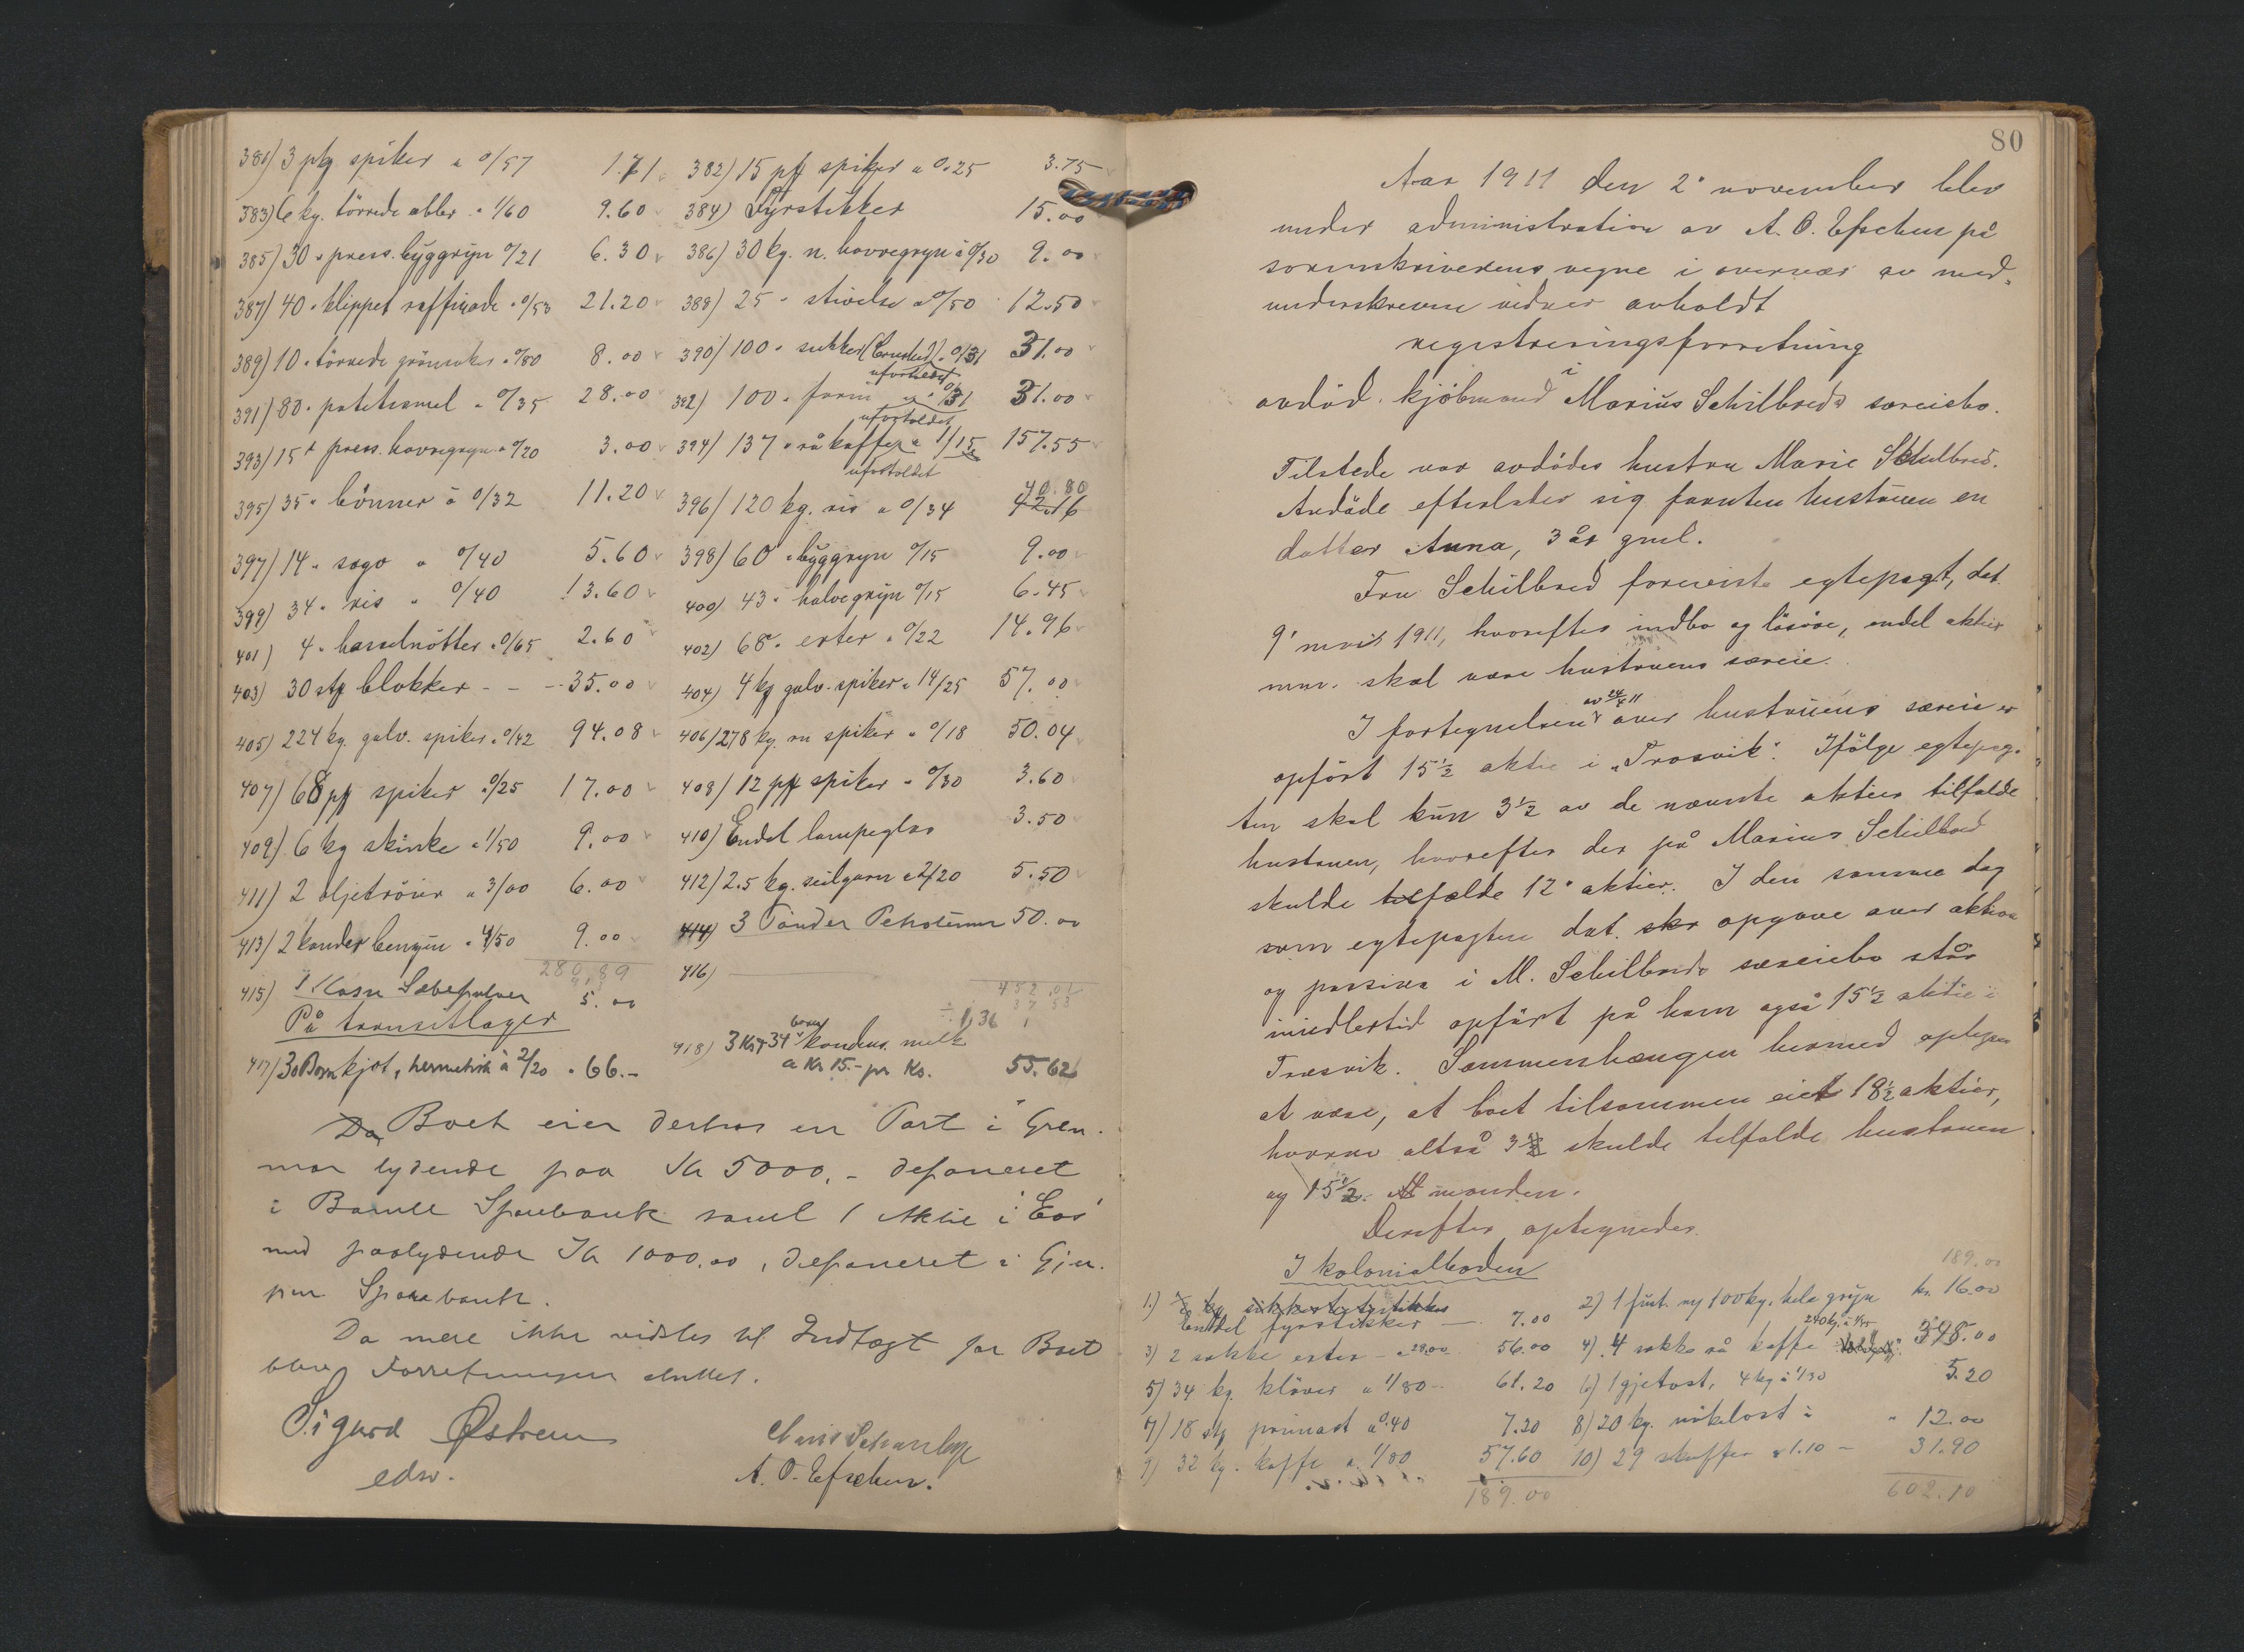 381) 3 pkg spiker a 0/57 1.71 382) 15 pk spiker a 0.25 3.75
383) 6 kg. törrede æbler " 1/60 9.60 384) Fyrstikker 15.00
385) 30 " press. byggryn 0/21 6.30 386) 30 kg. n. havregryn à 0/30 9.00
387) 40 " klippet raffinade " 0/53 21.20 388) 25 " stivelse a 0/50 12.50
389) 10 " törrede grönsaker " 0/80 8.00 390) 100 " sukker (Crushed) " 0/31 31.00
ufortoldet
391) 80 " potetesmel " 0/35 28.00 392) 100 " farin " 0/31 31.00
ufortoldet
393) 15 " press. havregryn " 0/20 3.00 394) 137 " rå kaffe a 1/15 157.55
ufortoldet
395) 35 " bönner à 0/32 11.20 396) 120 kg. ris a 0/34 42.16 40.80
397) 14 " sago " 0/40 5.60 398) 60 " byggryn 0/15 9.00
399) 34 " ris " 0/40 13.60 400) 43 " halvegryn 0/15 6.45
401) 4 " hasselnötter " 0/65 2.60 402) 68 " erter " 0/22 14.96
403) 30 stk blokker - - - 35.00 404) 4 kg galv. spiker " 14/25 57.00
405) 224 kg. galv. spiker " 0/42 94.08 406) 278 kg. rn spiker " 0/18 50.04
407) 68 pk spiker " 0/25 17.00 408) 12 pk spiker " 0/30 3.60
409) 6 kg skinke " 1/50 9.00 410) Endel lampeglas 3.50
411) 2 oljetröier " 3/00 6.00 412) 2.5 kg. seilgarn a 2/20 5.50
413) 2 kander benzin " 4/50 9.00 414) 3 Tönder Petroleum 50.00
280.89 416)
415) 1 Kasse Sæbepulver 5.00 452.01
På transitlager 1,36
417) 30 Boxer kjöt, hermetisk à 2/20 " 66.- 418) 3 Ks + 34 boxer kondens. melk
a Kr 15.- pr Ks. 55.62
Da Boet eier desuden en Part i Gren-
mar lydende paa Kr 5000,- deponeret
i Bamle Sparebank samt 1 Aktie i "Eos"
med paalydende Kr 1000.00, deponeret i Gjer-
pen Sparebank.
Da mere ikke vidstes til Indtægt for Boet
blev Forretningen sluttet.
Sigurd Østrem
edsv. A. O. Efschen.
80
Aar 1911 den 2' november blev
under administration av A. O. Efschen på
sorenskriverens vegne i overvær av med-
underskrevne vidner avholdt
registreringsforretning
i
avdöd. kjöbmand Marius Schilbreds særeiebo.
Tilstede var avdödes hustru Marie Schilbred.
Avdöde efterlater sig foruten hustruen en
datter Anna, 3 år gml.
Fru Schilbred foreviste egtepagt, dat.
9' mars 1911, hvorefter indbo og lösöre, endel aktier
m.m. skal være hustruens særeie.
I fortegnelsen av 24/4 11 over hustruens særeie er
opfört 15 1/2 aktie i "Trosvik". Ifölge egtepag-
ten skal kun 3 1/2 av de nævnte aktier tilfalde
hustruen, hvorefter der på Marius Schilbred
skulde tilfalde 12 aktier. I den samme dag
som egtepagten dat. opgave over aktiva
og passiva i M. Schilbreds særeiebo står
imidlertid opfört på ham også 15 1/2 aktie i
Trosvik. Sammenhængen hermed oplyses
at være, at boet tilsammen eiet 18 1/2 aktier,
hvorav altså 3 skulde tilfalde hustruen
og 15 1/2 manden.
Derefter optegnedes.
I kolonialboden 189.00
1.) Endel fyrstikker 7.00 2) 1 fust. ny 100 kg. hele gryn kr. 16.00
3) 2 sække erter - a 28.00 56.00 4) 4 sekke rå kaffe 398.00
5) 34 kg. klöver a 1/80 61.20 6) 1 gjetost, 4 kg à 1/30 5.20
7) 18 stk primost a 0.40 7.20 8) 20 kg. nökelost à " 12.00
9) 32 kg. kaffe a 1/80 57.60 10) 29 skuffer a 1.10 - 31.90
189.00 602.10